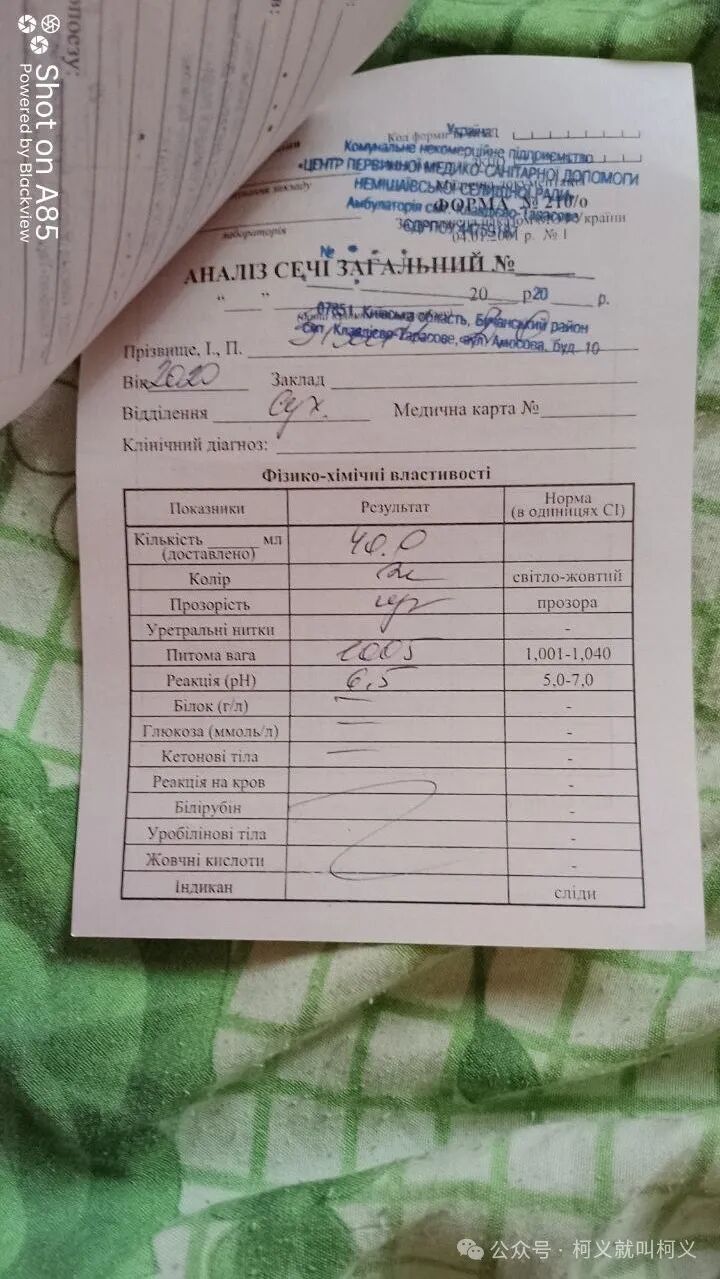 Shot on A85
Powered by Blackview
Україна
Код форми
Комунальне некомерційне підприємство
«ЦЕНТР ПЕРВИННОЇ МЕДИКО-САНІТАРНОЇ ДОПОМОГИ
НЕМІШАЇВСЬКОЇ СЕЛИЩНОЇ РАДИ»
ФОРМА № 210/о
Амбулаторія смт. Клавдієво-Тарасове
України
лабораторія
04.01.2001 р. № 1
№
АНАЛІЗ СЕЧІ ЗАГАЛЬНИЙ №
"__" 20 р20 р.
07851, Київська область, Бучанський район
смт. Клавдієво-Тарасове, вул. Амосова, буд. 10
Прізвище, І., П.
Вік 2020 Заклад
Відділення Медична карта №
Клінічний діагноз:
Фізико-хімічні властивості
Показники Результат Норма
(в одиницях СІ)
Кількість мл
(доставлено) 40.0
Колір світло-жовтий
Прозорість прозора
Уретральні нитки -
Питома вага 1005 1,001-1,040
Реакція (рН) 6,5 5,0-7,0
Білок (г/л) — -
Глюкоза (ммоль/л) — -
Кетонові тіла — -
Реакція на кров -
Білірубін -
Уробілінові тіла -
Жовчні кислоти -
Індикан сліди
公众号 · 柯义就叫柯义